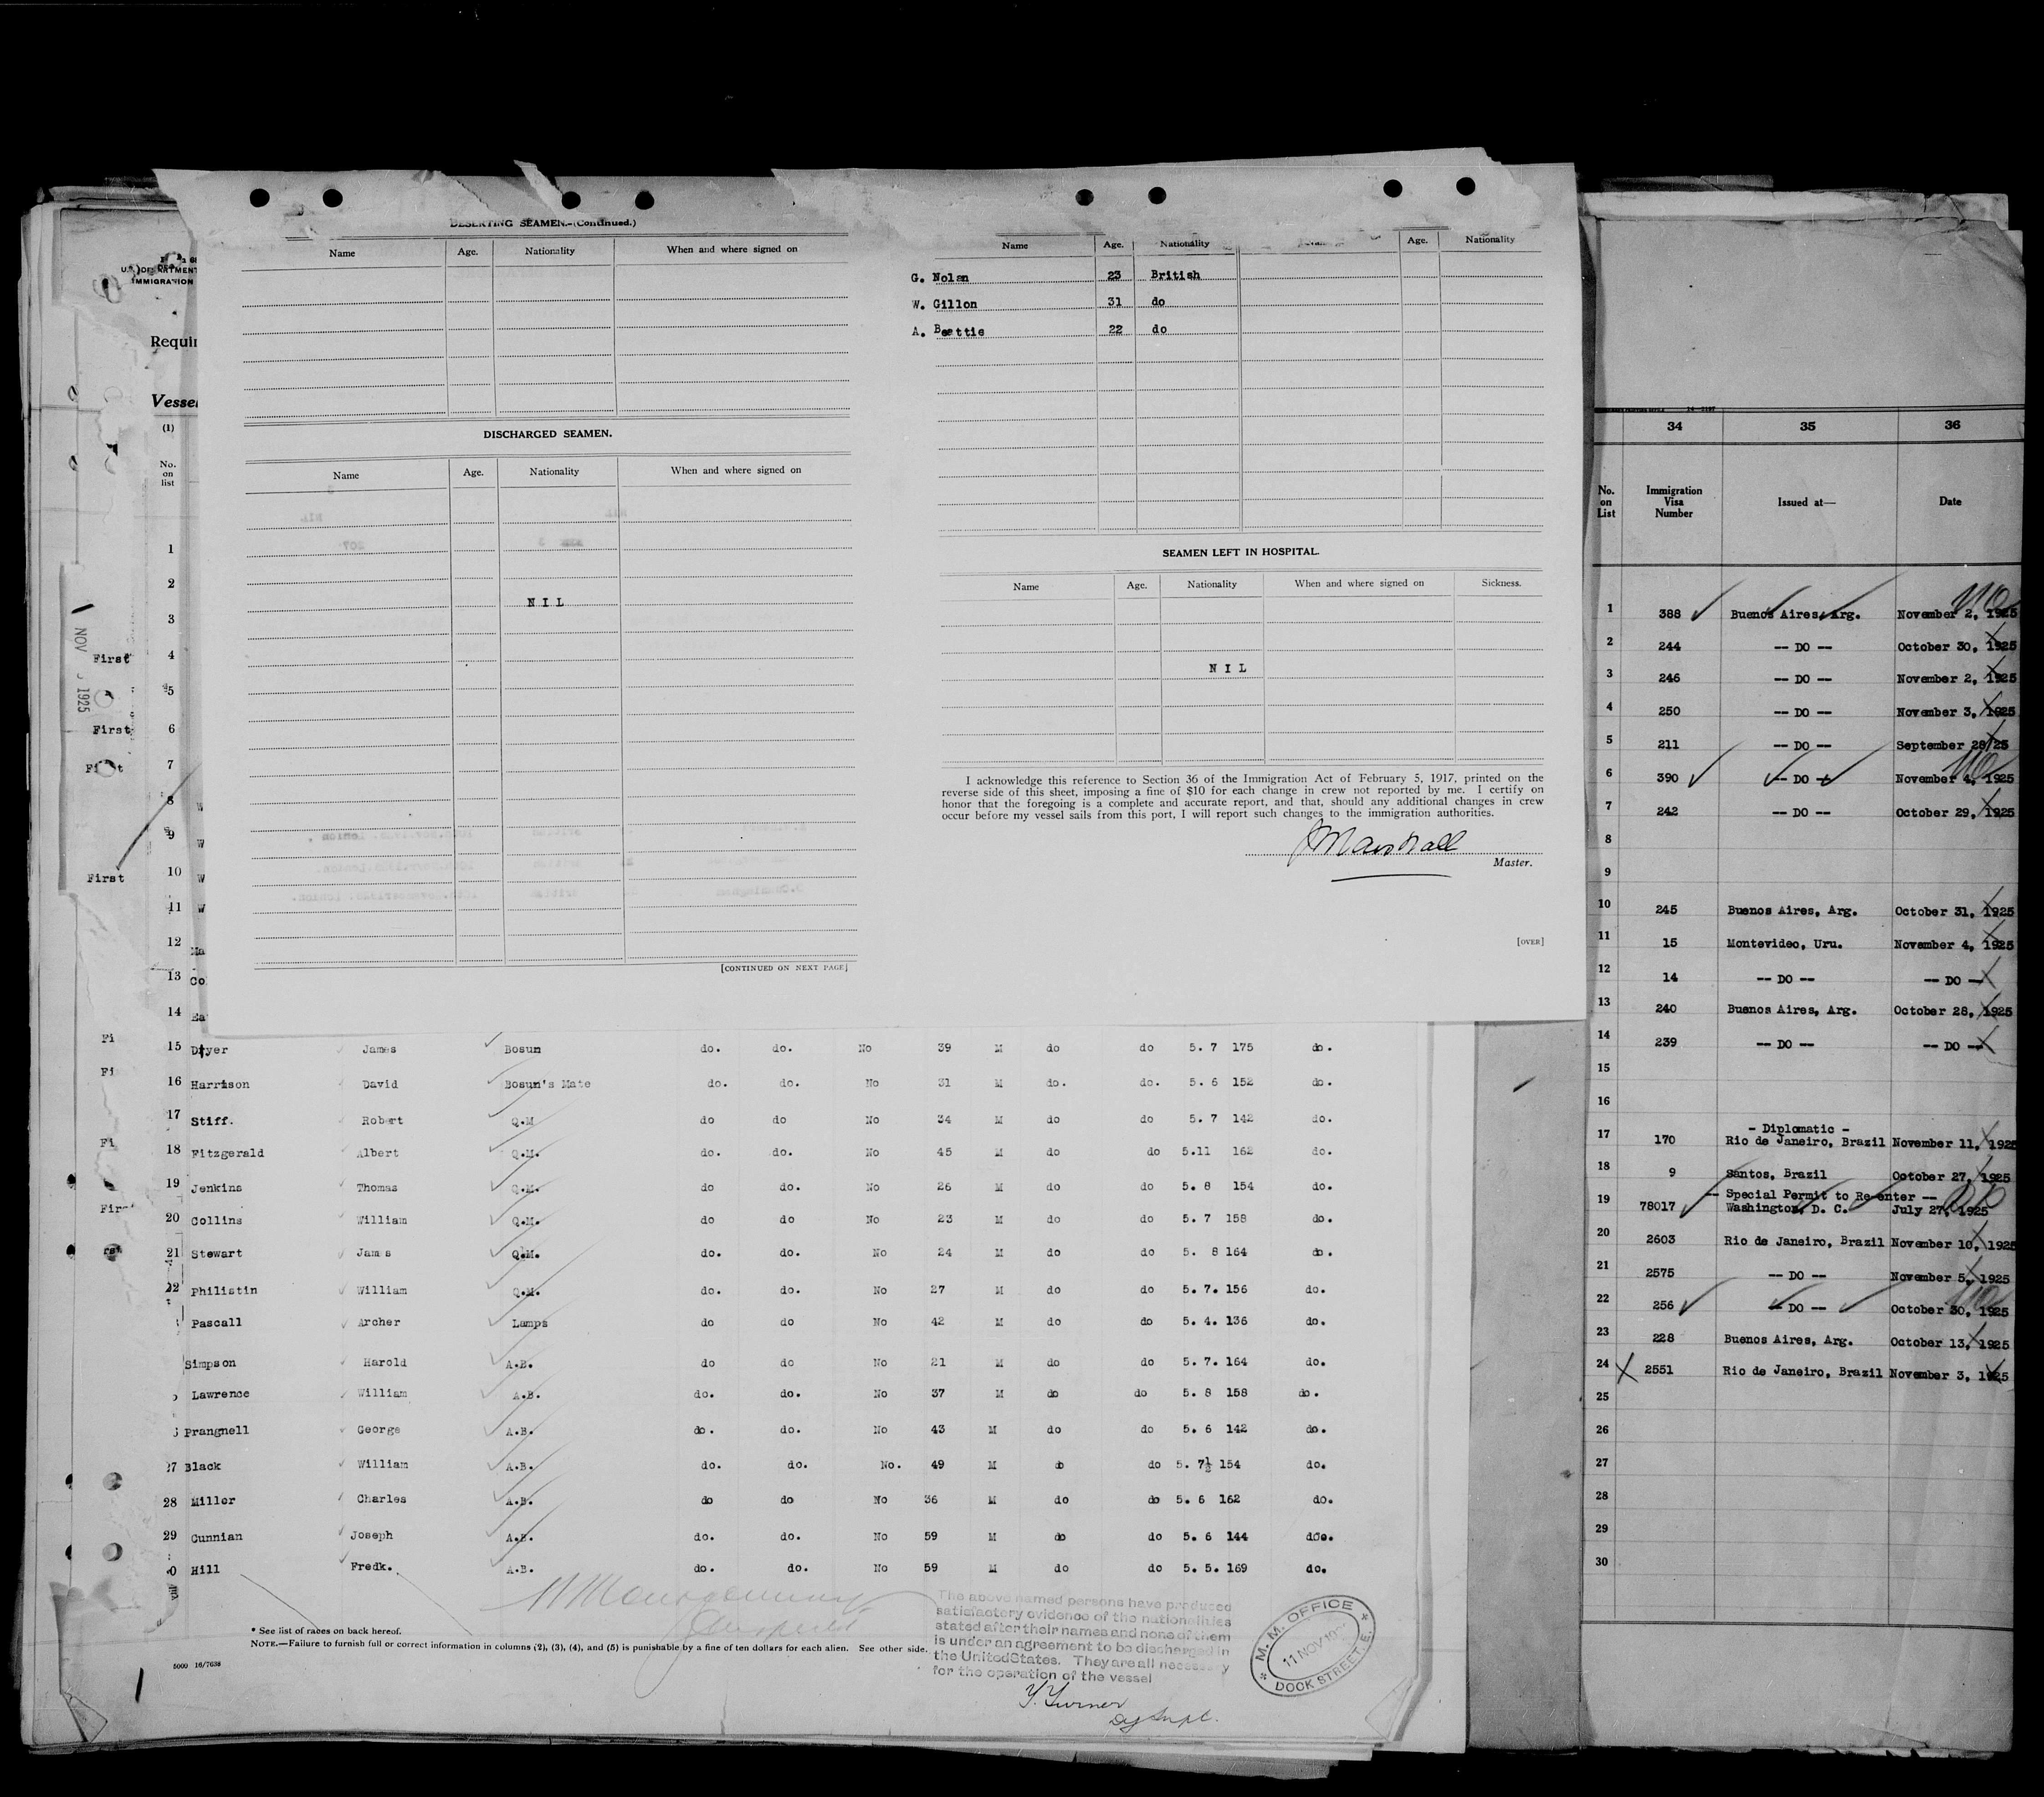 DESERTING SEAMEN.-(Continued.)
Name Age. Nationality When and where signed on
DISCHARGED SEAMEN.
Name Age. Nationality When and where signed on
NIL
[CONTINUED ON NEXT PAGE]
Name Age. Nationality Age. Nationality
G. Nolan 23 British
W. Gillon 31 do
A. Beattie 22 do
SEAMEN LEFT IN HOSPITAL.
Name Age. Nationality When and where signed on Sickness.
NIL
I acknowledge this reference to Section 36 of the Immigration Act of February 5, 1917, printed on the
reverse side of this sheet, imposing a fine of $10 for each change in crew not reported by me. I certify on
honor that the foregoing is a complete and accurate report, and that, should any additional changes in crew
occur before my vessel sails from this port, I will report such changes to the immigration authorities.
J Marshall
Master.
[OVER]
IMMIGRATION
Requir
Vessel
(1)
No.
on
list
NOV 1925
1
2
3
First 4
5
First 6
7
8
9 W
First 10 W
11 W
12 Ma
13 Co
14 Ea
15 Dryer James Bosun do. do. No 39 M do do 5. 7 175 do.
16 Harrison David Bosun's Mate do. do. No 31 M do. do. 5. 6 152 do.
17 Stiff. Robert Q.M do do No 34 M do do 5. 7 142 do.
18 Fitzgerald Albert Q.M. do. do. No 45 M do do 5.11 162 do.
19 Jenkins Thomas Q.M. do do. No 26 M do do 5. 8 154 do.
20 Collins William Q.M. do do No 23 M do do 5. 7 158 do.
21 Stewart James Q.M. do. do. No 24 M do do 5. 8 164 do.
22 Philistin William Q.M. do. do. No 27 M do do 5. 7. 156 do.
Pascall Archer Lamps do do No 42 M do do 5. 4. 136 do.
Simpson Harold A.B. do do No 21 M do do 5. 7. 164 do.
Lawrence William A.B. do. do. No 37 M do do 5. 8 158 do.
Prangnell George A.B. do. do. No 43 M do do 5. 6 142 do.
27 Black William A.B. do. do. No. 49 M do do 5. 7½ 154 do.
28 Miller Charles A.B. do do No 36 M do do 5. 6 162 do.
29 Cunnian Joseph A.B. do. do. No 59 M do do 5. 6 144 doo.
0 Hill Fredk. A.B. do. do. No 59 M do do 5. 5. 169 do.
* See list of races on back hereof.
NOTE.—Failure to furnish full or correct information in columns (2), (3), (4), and (5) is punishable by a fine of ten dollars for each alien. See other side.
5000 16/7638
The above named persons have produced
satisfactory evidence of the nationalities
stated after their names and none of them
is under an agreement to be discharged in
the United States. They are all necessary
for the operation of the vessel
Y. Turner
Dy Supt.
M. M. OFFICE
11 NOV 192
DOCK STREET. E.
34 35 36
No. on List Immigration Visa Number Issued at— Date
1 388 Buenos Aires, Arg. November 2, 1925
2 244 -- DO -- October 30, 1925
3 246 -- DO -- November 2, 1925
4 250 -- DO -- November 3, 1925
5 211 -- DO -- September 28/25
6 390 -- DO -- November 4, 1925
7 242 -- DO -- October 29, 1925
8
9
10 245 Buenos Aires, Arg. October 31, 1925
11 15 Montevideo, Uru. November 4, 1925
12 14 -- DO -- -- DO --
13 240 Buenos Aires, Arg. October 28, 1925
14 239 -- DO -- -- DO --
15
16
- Diplomatic -
17 170 Rio de Janeiro, Brazil November 11, 1925
18 9 Santos, Brazil October 27, 1925
-- Special Permit to Re-enter --
19 78017 Washington, D. C. July 27, 1925
20 2603 Rio de Janeiro, Brazil November 10, 1925
21 2575 -- DO -- November 5, 1925
22 256 -- DO -- October 30, 1925
23 228 Buenos Aires, Arg. October 13, 1925
24 2551 Rio de Janeiro, Brazil November 3, 1925
25
26
27
28
29
30